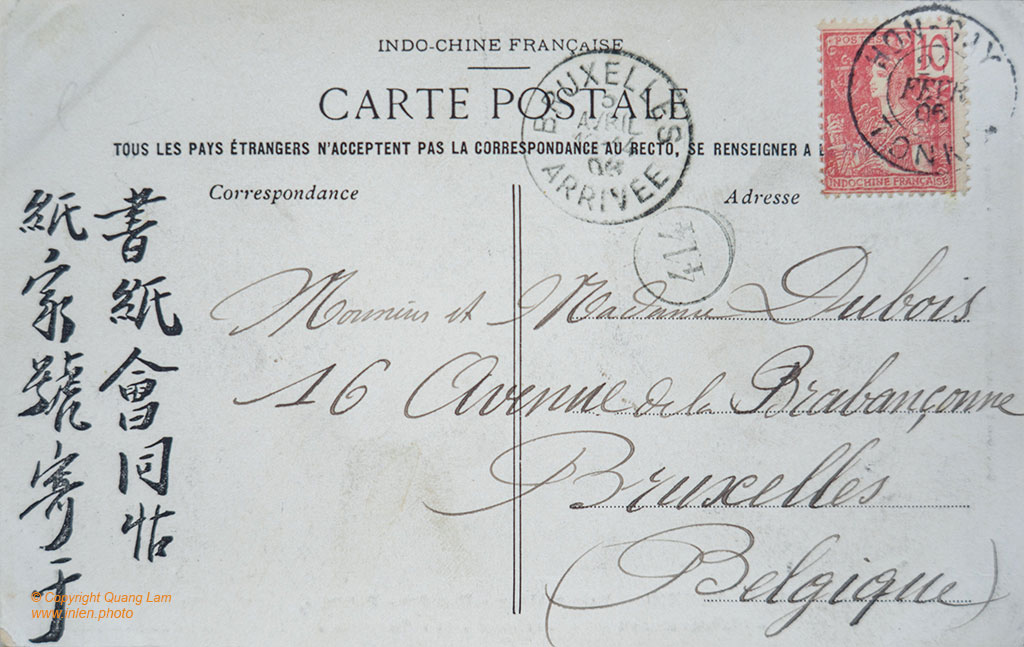 INDO-CHINE FRANÇAISE
CARTE POSTALE
TOUS LES PAYS ÉTRANGERS N'ACCEPTENT PAS LA CORRESPONDANCE AU RECTO, SE RENSEIGNER A
Correspondance
Adresse
POSTES
10
INDOCHINE FRANÇAISE
HON-GAY
FEVR
06
TONKIN
BRUXELLES
5
AVRIL
06
ARRIVEE
414
Monsieur et Madame Dubois
16 Avenue de la Brabançonne
Bruxelles
(Belgique)
書紙會同
紙家號寄于
© Copyright Quang Lam
www.inlen.photo